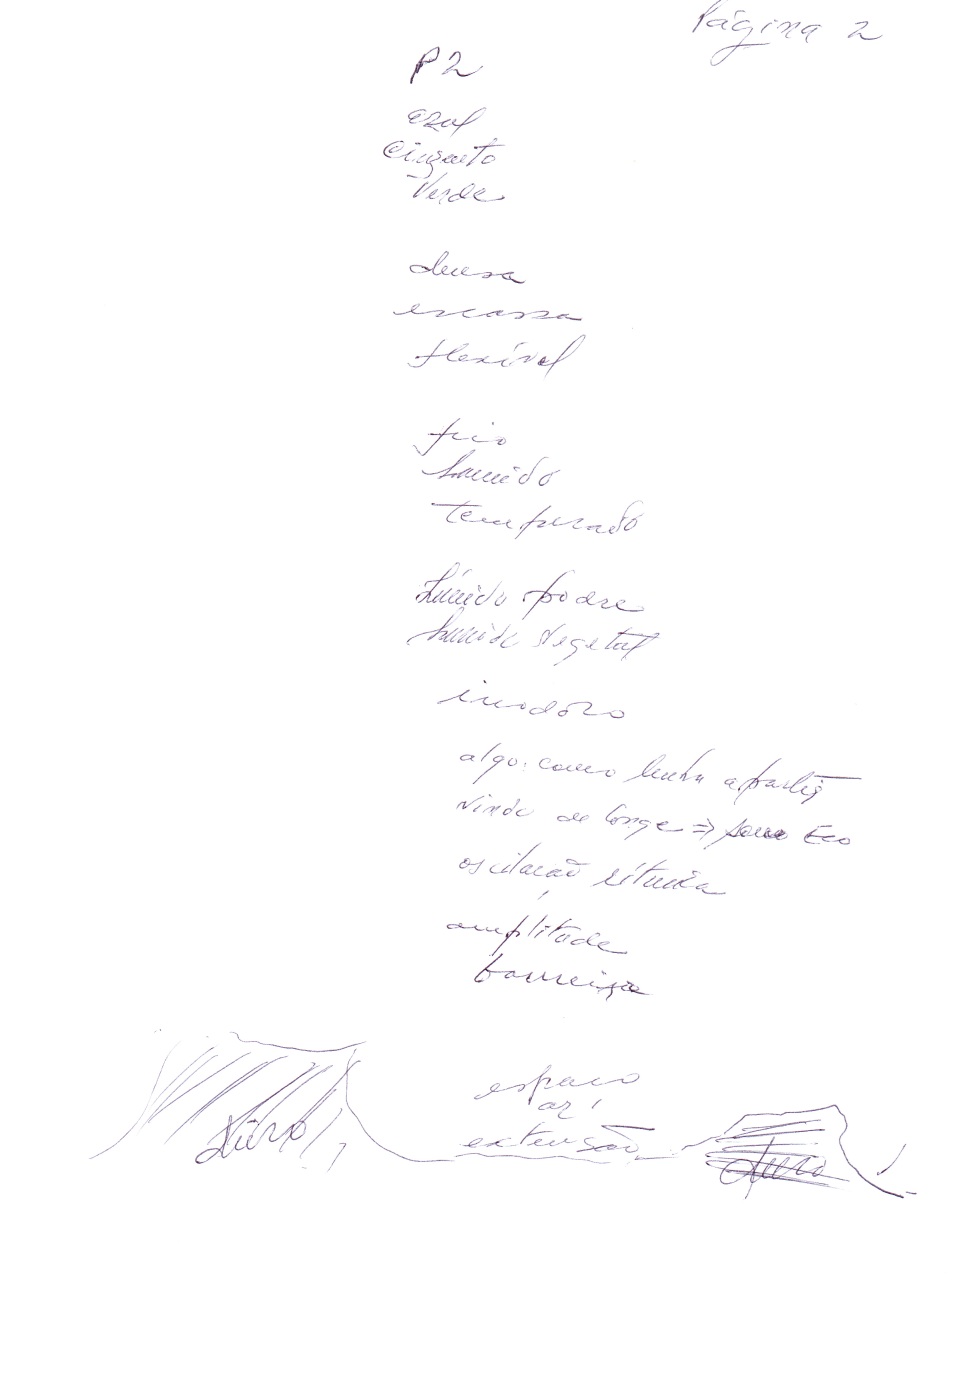 Página 2
P2
azul
Cinzento
Verde
densa
escassa
flexível
frio
húmido
temperado
húmido podre
húmido vegetal
inodoro
algo: como lenha a partir
vindo de longe => som Eco
oscilação rítmica
amplitude
barreira
espaço
ar!
extensão
duro
duro